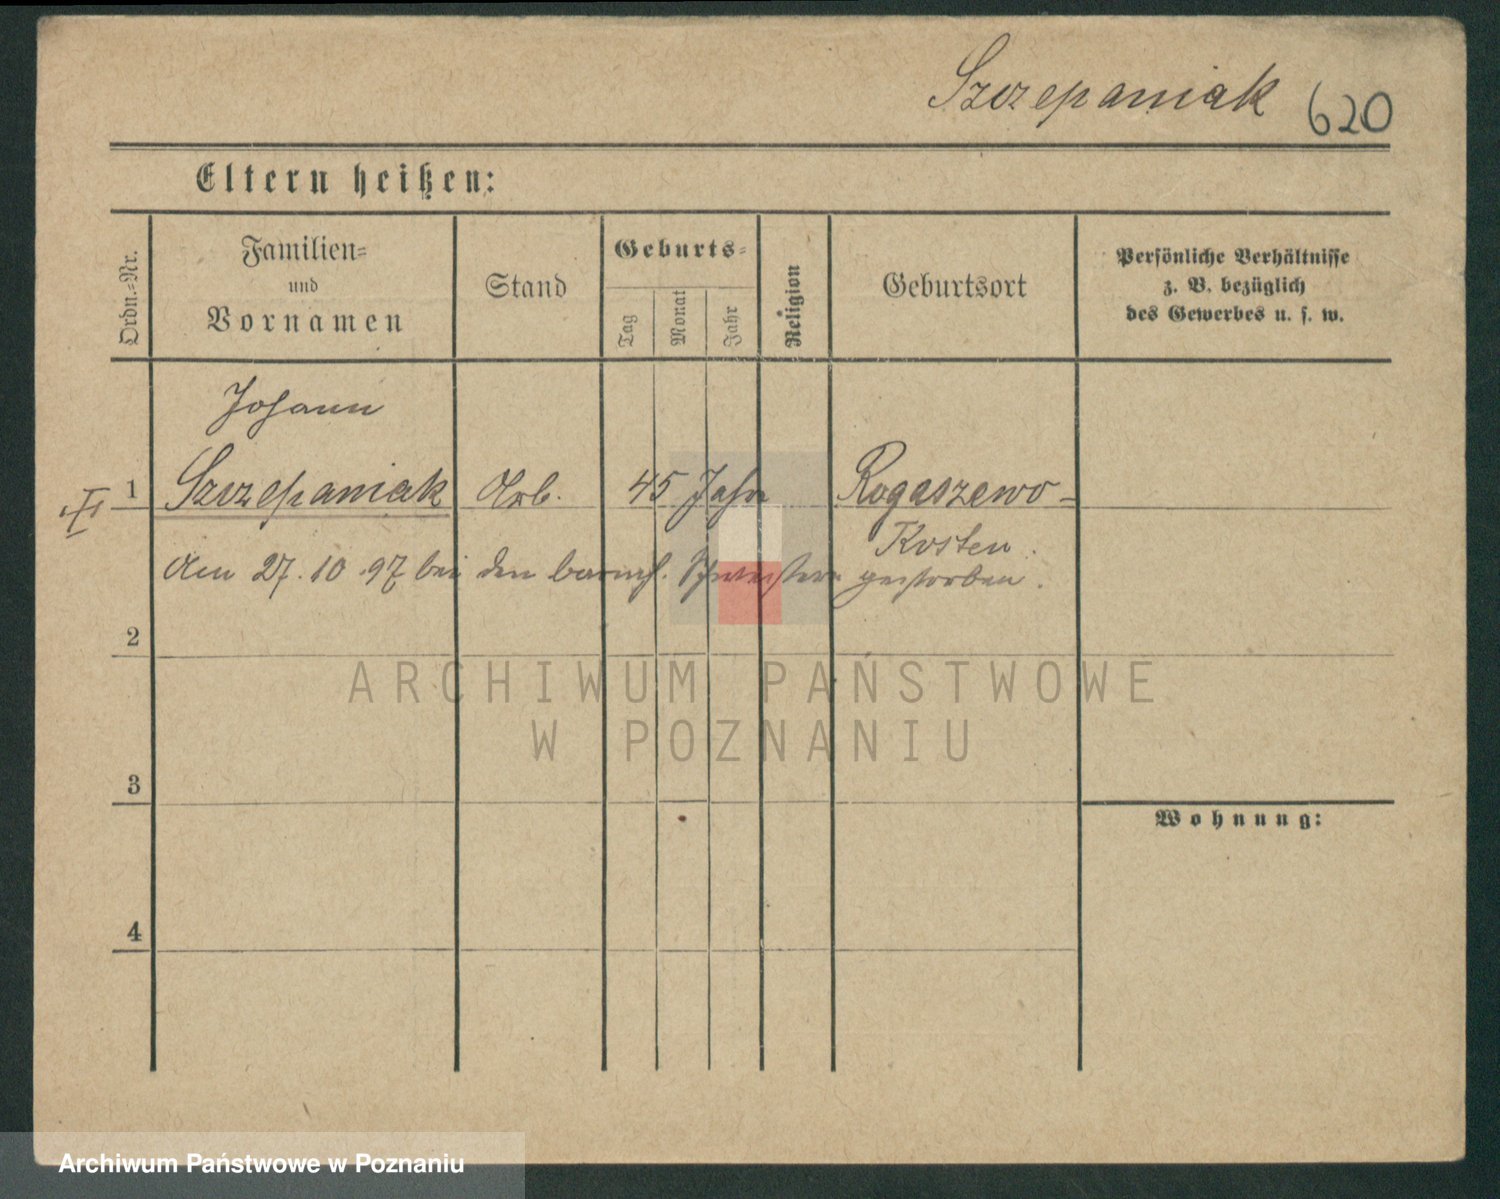 Szczepaniak 620
Eltern heißen:
Ordn.-Nr.
Familien-
und
Vornamen
Stand
Geburts-
Tag
Monat
Jahr
Religion
Geburtsort
Persönliche Verhältnisse
z. B. bezüglich
des Gewerbes u. s. w.
Johann
1 Szczepaniak Arb. 45 Jahr Rogaszewo-
Kosten.
Am 27.10.97 bei den barmh. Schwestern gestorben.
2
ARCHIWUM PAŃSTWOWE
W POZNANIU
3
Wohnung:
4
Archiwum Państwowe w Poznaniu